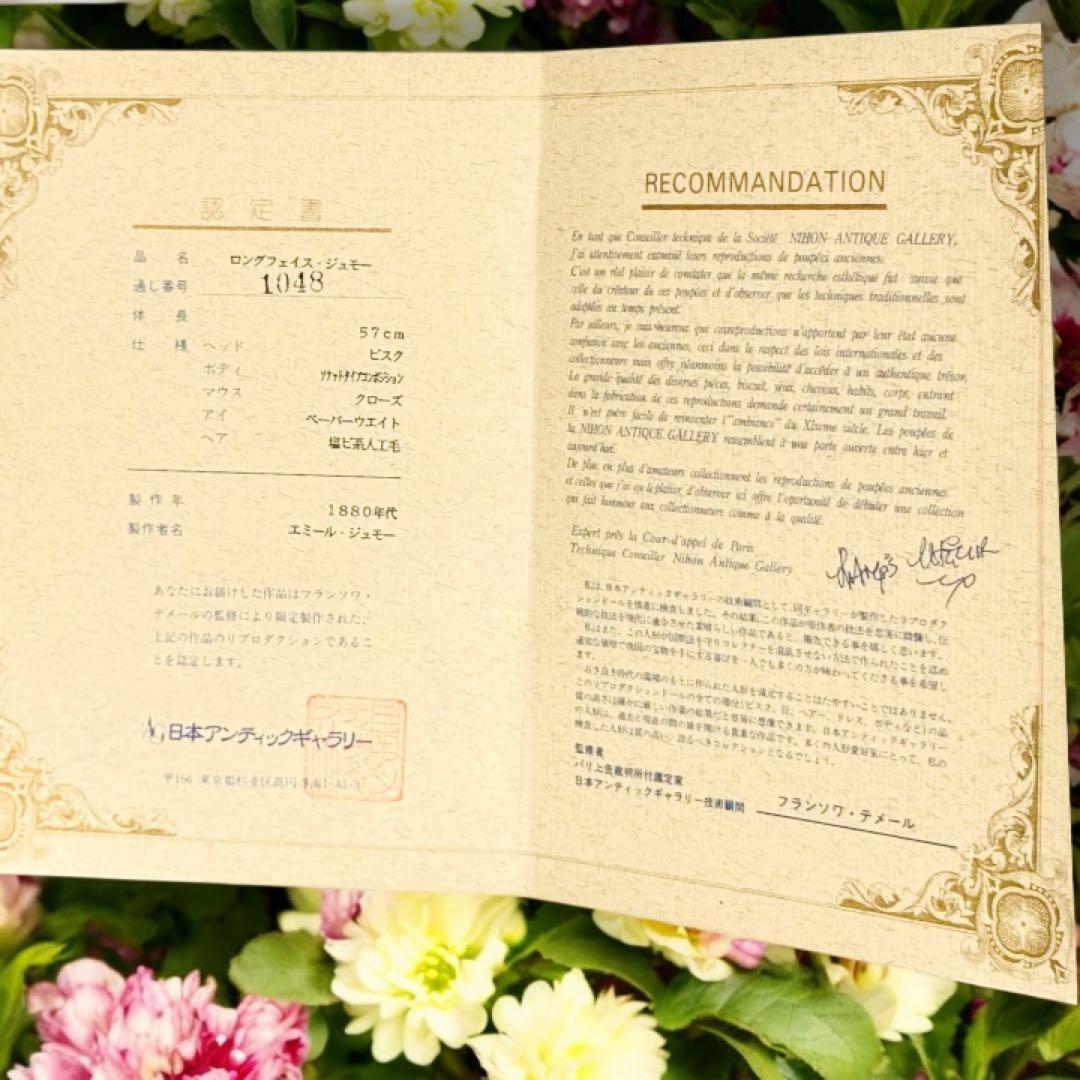 認定書
品名 ロングフェイス・ジュモー
通し番号 1048
体長 57cm
仕様 ヘッド ビスク
ボディ ソケットタイプコンポジション
マウス クローズ
アイ ペーパーウエイト
ヘア 塩ビ系人工毛
製作年 1880年代
製作者名 エミール・ジュモー
あなたにお届けした作品はフランソワ・
テメールの監修により限定製作された、
上記の作品のリプロダクションであるこ
とを認定します。
日本アンティックギャラリー
〒166 東京都杉並区高円寺南
RECOMMANDATION
En tant que Conseiller technique de la Société NIHON ANTIQUE GALLERY,
j'ai attentivement examiné leurs reproductions de poupées anciennes.
C'est un réel plaisir de constater que la même recherche esthétique fut suivie que
celle du créateur de ces poupées et d'observer que les techniques traditionnelles sont
adaptées au temps présent.
Par ailleurs, je suis heureux que ces reproductions n'apportent par leur état aucune
confusion avec les anciennes, ceci dans le respect des lois internationales et des
collectionneurs mais offre néanmoins la possibilité d'accéder à un authentique trésor.
La grande qualité des diverses pièces, biscuit, yeux, cheveux, habits, corps, entrant
dans la fabrication de ces reproductions demande certainement un grand travail.
Il n'est guère facile de réinventer l'"ambiance" du XIxeme siècle. Les poupées de
la NIHON ANTIQUE GALLERY ressemblent à une porte ouverte entre hier et
aujourd'hui.
De plus en plus d'amateurs collectionnent les reproductions de poupées anciennes
et celles que j'ai eu le plaisir d'observer ici offre l'oportunité de débuter une collection
qui fait honneur aux collectionneurs comme à la qualité.
Expert près la Cour d'appel de Paris
Technique Conseiller Nihon Antique Gallery
私は、日本アンティックギャラリーの技術顧問として、同ギャラリーが製作したリプロダク
ションドールを慎重に検査しました。その結果、この作品が原作者の技法を忠実に踏襲し、伝
統的な技法を現代に適合させた素晴らしい作品であると、報告できる事を嬉しく思います。
私はまた、この人形が国際法を守りコレクターを混乱させない方法で作られたことを認め
適切な価格で我国の宝物を手にする喜びを一人でも多くの方が味わってくださる事を希望し
ます。
古き良き時代の環境のもとに作られた人形を復元することはたやすいことではありません。
このリプロダクションドールの全ての部分(ビスク、目、ヘアー、ドレス、ボディなど)の品
質の高さは確かに厳しい作業の結果だと容易に想像できます。日本アンティックギャラリー
の人形は、過去と現在の間の扉を開ける貴重な作品です。多くの人形愛好家にとって、私の
検査した人形は質の高い、誇るべきコレクションとなるでしょう。
監修者
パリ上告裁判所付鑑定家
日本アンティックギャラリー技術顧問 フランソワ・テメール